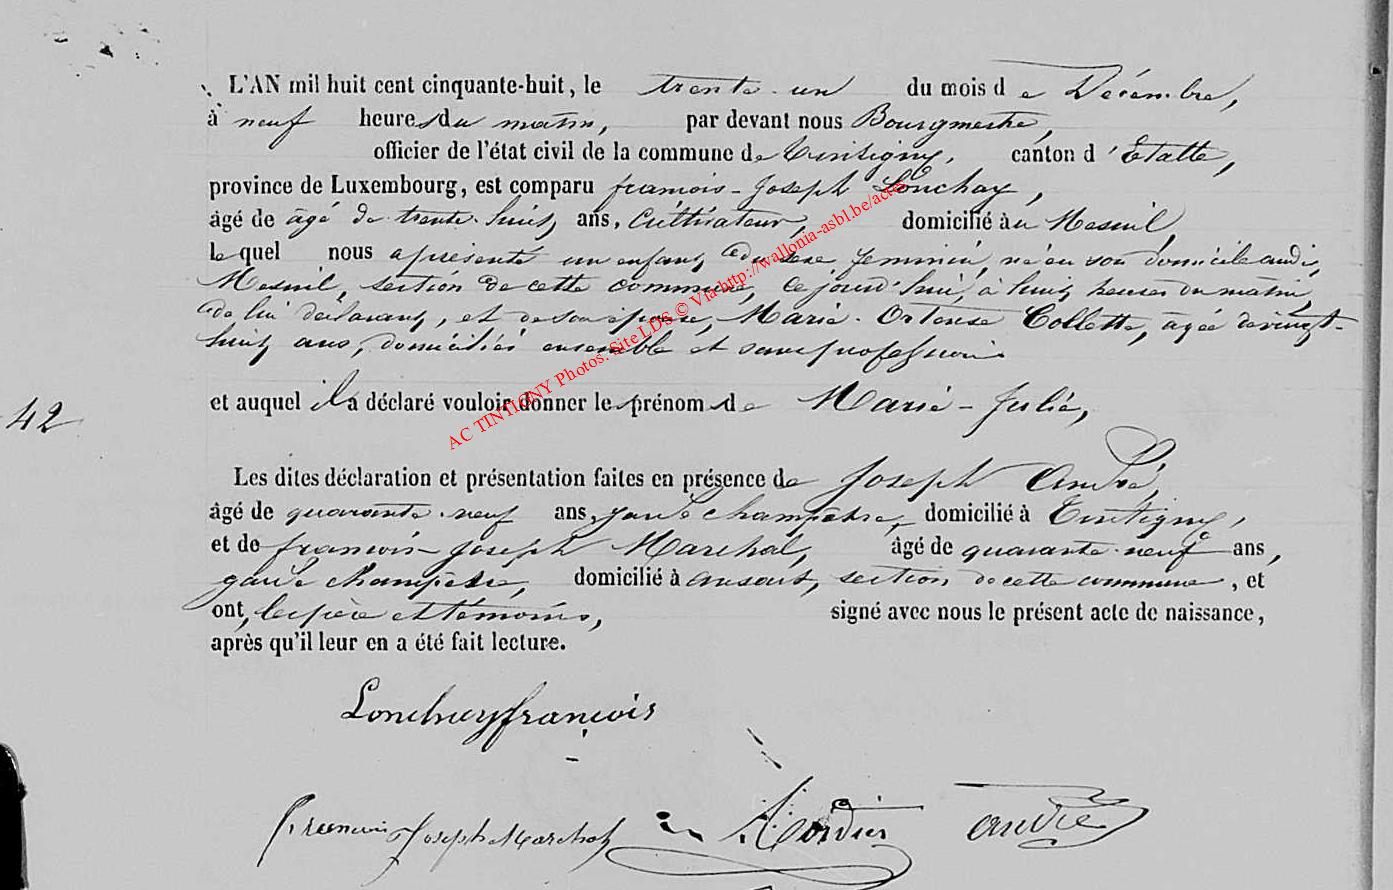 L'AN mil huit cent cinquante-huit, le trente-un du mois de Décembre,
à neuf heures du matin, par devant nous Bourgmestre,
officier de l'état civil de la commune de Tintigny, canton d'Etalle,
province de Luxembourg, est comparu françois-Joseph Lonchay,
âgé de âgé de trente-huit ans, Cultivateur, domicilié au Mesnil,
lequel nous a présenté un enfant du sexe feminin, né en son domicile audit
Mesnil, section de cette commune, ce jourd'hui, à huit heures du matin,
de lui déclarant, et de son épouse, Marie-Ortense Collette, âgée de vingt-
huit ans, domiciliés ensemble et sans profession
et auquel il a déclaré vouloir donner les prénoms de Marie-Julie,
42
Les dites déclaration et présentation faites en présence de Joseph André,
âgé de quarante-neuf ans, garde champêtre, domicilié à Tintigny,
et de françois-Joseph Marchal, âgé de quarante-neuf ans,
garde champêtre, domicilié à ansart, section de cette commune, et
ont, les père et témoins, signé avec nous le présent acte de naissance,
après qu'il leur en a été fait lecture.
Lonchay françois
françois Joseph Marchal André
AC TINTIGNY Photos: Site LDS © Via http://wallonia-asbl.be/actes